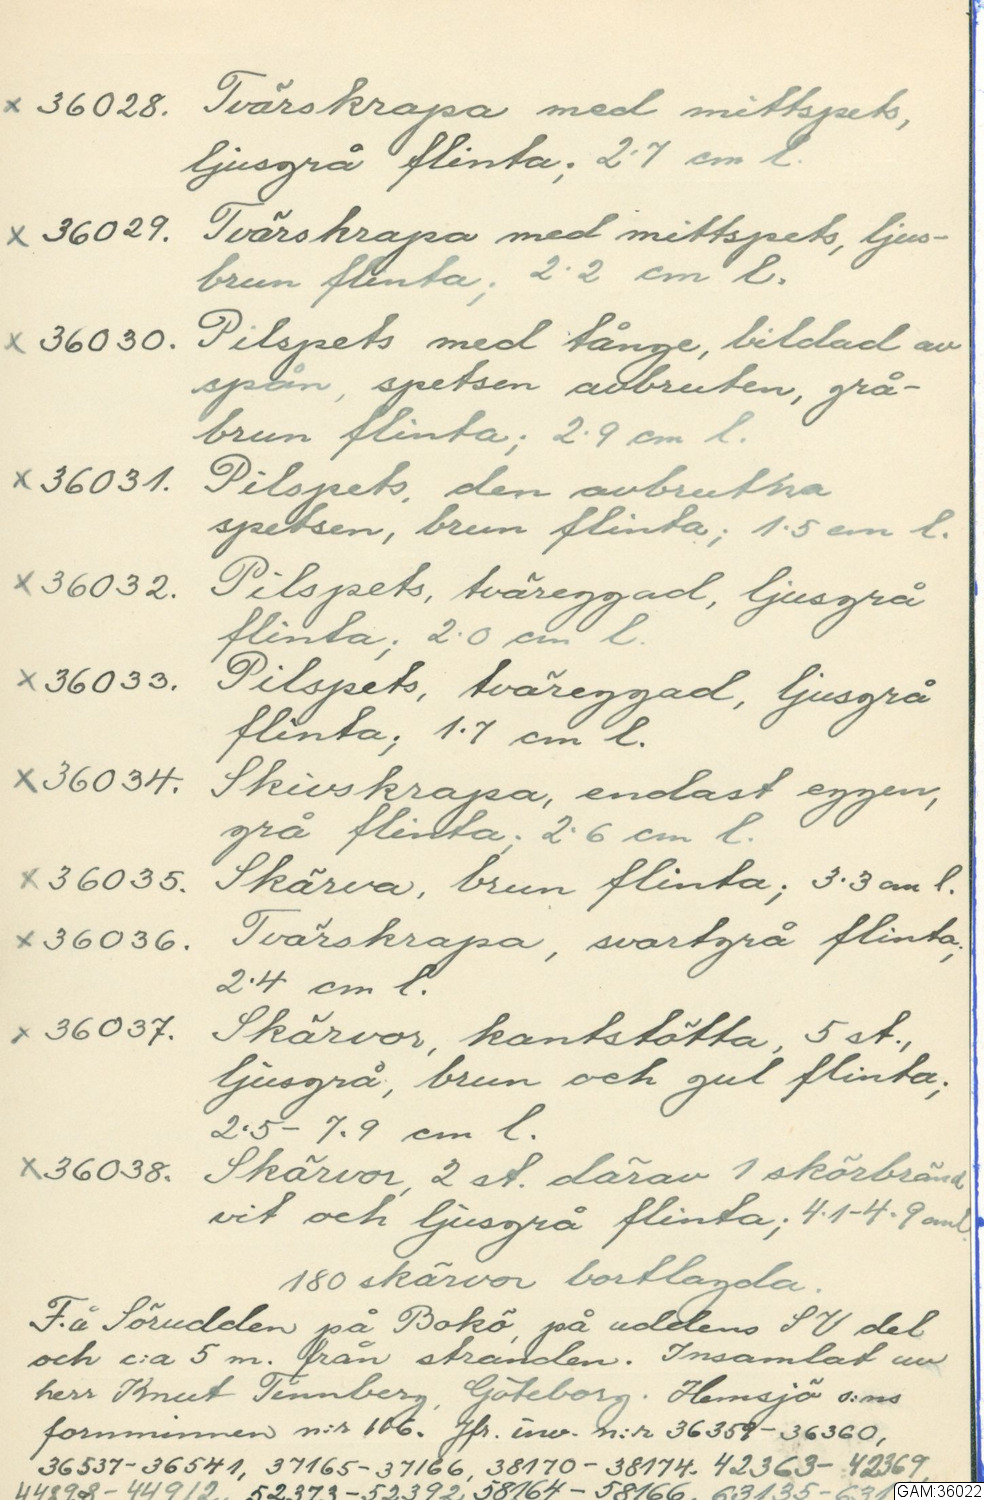 x 36028. Tvärskrapa med mittspets,
ljusgrå flinta; 2.7 cm l.
x 36029. Tvärskrapa med mittspets, ljus-
brun flinta; 2.2 cm l.
x 36030. Pilspets med tånge, bildad av
spån, spetsen avbruten, grå-
brun flinta; 2.9 cm l.
x 36031. Pilspets, den avbrutna
spetsen, brun flinta; 1.5 cm l.
x 36032. Pilspets, tväreggad, ljusgrå
flinta; 2.0 cm l.
x 36033. Pilspets, tväreggad, ljusgrå
flinta; 1.7 cm l.
x 36034. Skivskrapa, endast eggen,
grå flinta; 2.6 cm l.
x 36035. Skärva, brun flinta; 3.3 cm l.
x 36036. Tvärskrapa, svartgrå flinta;
2.4 cm l.
x 36037. Skärvor, kantstötta, 5 st.,
ljusgrå, brun och gul flinta;
2.5 - 7.9 cm l.
x 36038. Skärvor, 2 st. därav 1 skörbränd
vit och ljusgrå flinta; 4.1-4.9 cm l.
180 skärvor bortlagda.
F.å Sörudden på Bokö, på uddens SV del
och c:a 5 m. från stranden. Insamlat av
herr Knut Tinnberg, Göteborg. Hemsjö s:ns
fornminnen n:r 106. Jfr. inv. n:r 36359-36360,
36537-36541, 37165-37166, 38170-38174. 42363-42369,
44898-44912, 52373-52392, 58164-58166,
GAM:36022